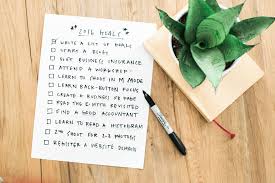 2016 GOALS
WRITE A LIST OF GOALS
START A BLOG
GET BUSINESS INSURANCE
ATTEND A WORKSHOP
LEARN TO SHOOT IN M MODE
LEARN BACK-BUTTON FOCUS
CREATE A BUSINESS FB PAGE
READ THE E-MYTH REVISITED
FIND A GOOD ACCOUNTANT
LEARN TO READ A HISTOGRAM
2ND SHOOT FOR 2-3 PHOTOGS
REGISTER A WEBSITE DOMAIN